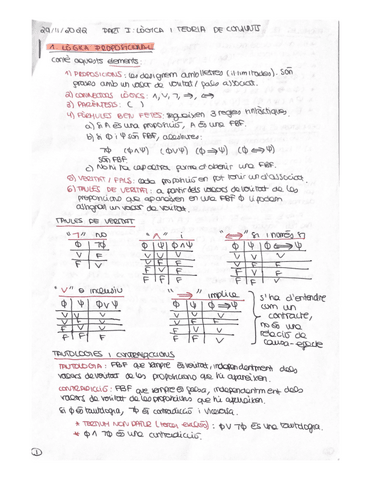 29/11/2022 PART I: LÒGICA I TEORIA DE CONJUNTS
1. LÒGICA PROPOSICIONAL
Conté aquests elements:
1) PROPOSICIONS: les designem amb lletres (il·limitades). Són
frases amb un valor de veritat / fals associat.
2) CONNECTORS LÒGICS: ∧, ∨, ¬, ⇒, ⇔
3) PARÈNTESIS: ( )
4) FÓRMULES BEN FETES: segueixen 3 regles sintàctiques.
a) Si A és una proposició, A és una FBF.
b) Si Φ i Ψ són FBF, aleshores:
¬Φ (Φ∧Ψ) (Φ∨Ψ) (Φ⇒Ψ) (Φ⇔Ψ)
són FBF.
c) No hi ha cap altra forma d'obtenir una FBF.
5) VERITAT / FALS: cada proposició en pot tenir un d'associat.
6) TAULES DE VERITAT: a partir dels valors de veritat de les
proposicions que apareixen en una FBF Φ li podem
assignar un valor de veritat.
TAULES DE VERITAT
"¬" no "∧" i "⇔" si i només si
Φ ¬Φ Φ Ψ Φ∧Ψ Φ Ψ Φ⇔Ψ
V F V V V V V V
F V V F F V F F
F V F F V F
F F F F F V
"∨" o inclusiu "⇒" implica
Φ Ψ Φ∨Ψ Φ Ψ Φ⇒Ψ
V V V V V V
V F V V F F
F V V F V V
F F F F F V
s'ha d'entendre
com un
contracte,
no és una
relació de
causa-efecte
TAUTOLOGIES I CONTRADICCIONS
TAUTOLOGIA: FBF que sempre és veritat, independentment dels
valors de veritat de les proposicions que hi apareixen.
CONTRADICCIÓ: FBF que sempre és falsa, independentment dels
valors de veritat de les proposicions que hi apareixen.
Si Φ és tautologia, ¬Φ és contradicció i viceversa.
* TERTIUM NON DATUR (tercer exclòs): Φ∨¬Φ és una tautologia.
* Φ∧¬Φ és una contradicció.
1